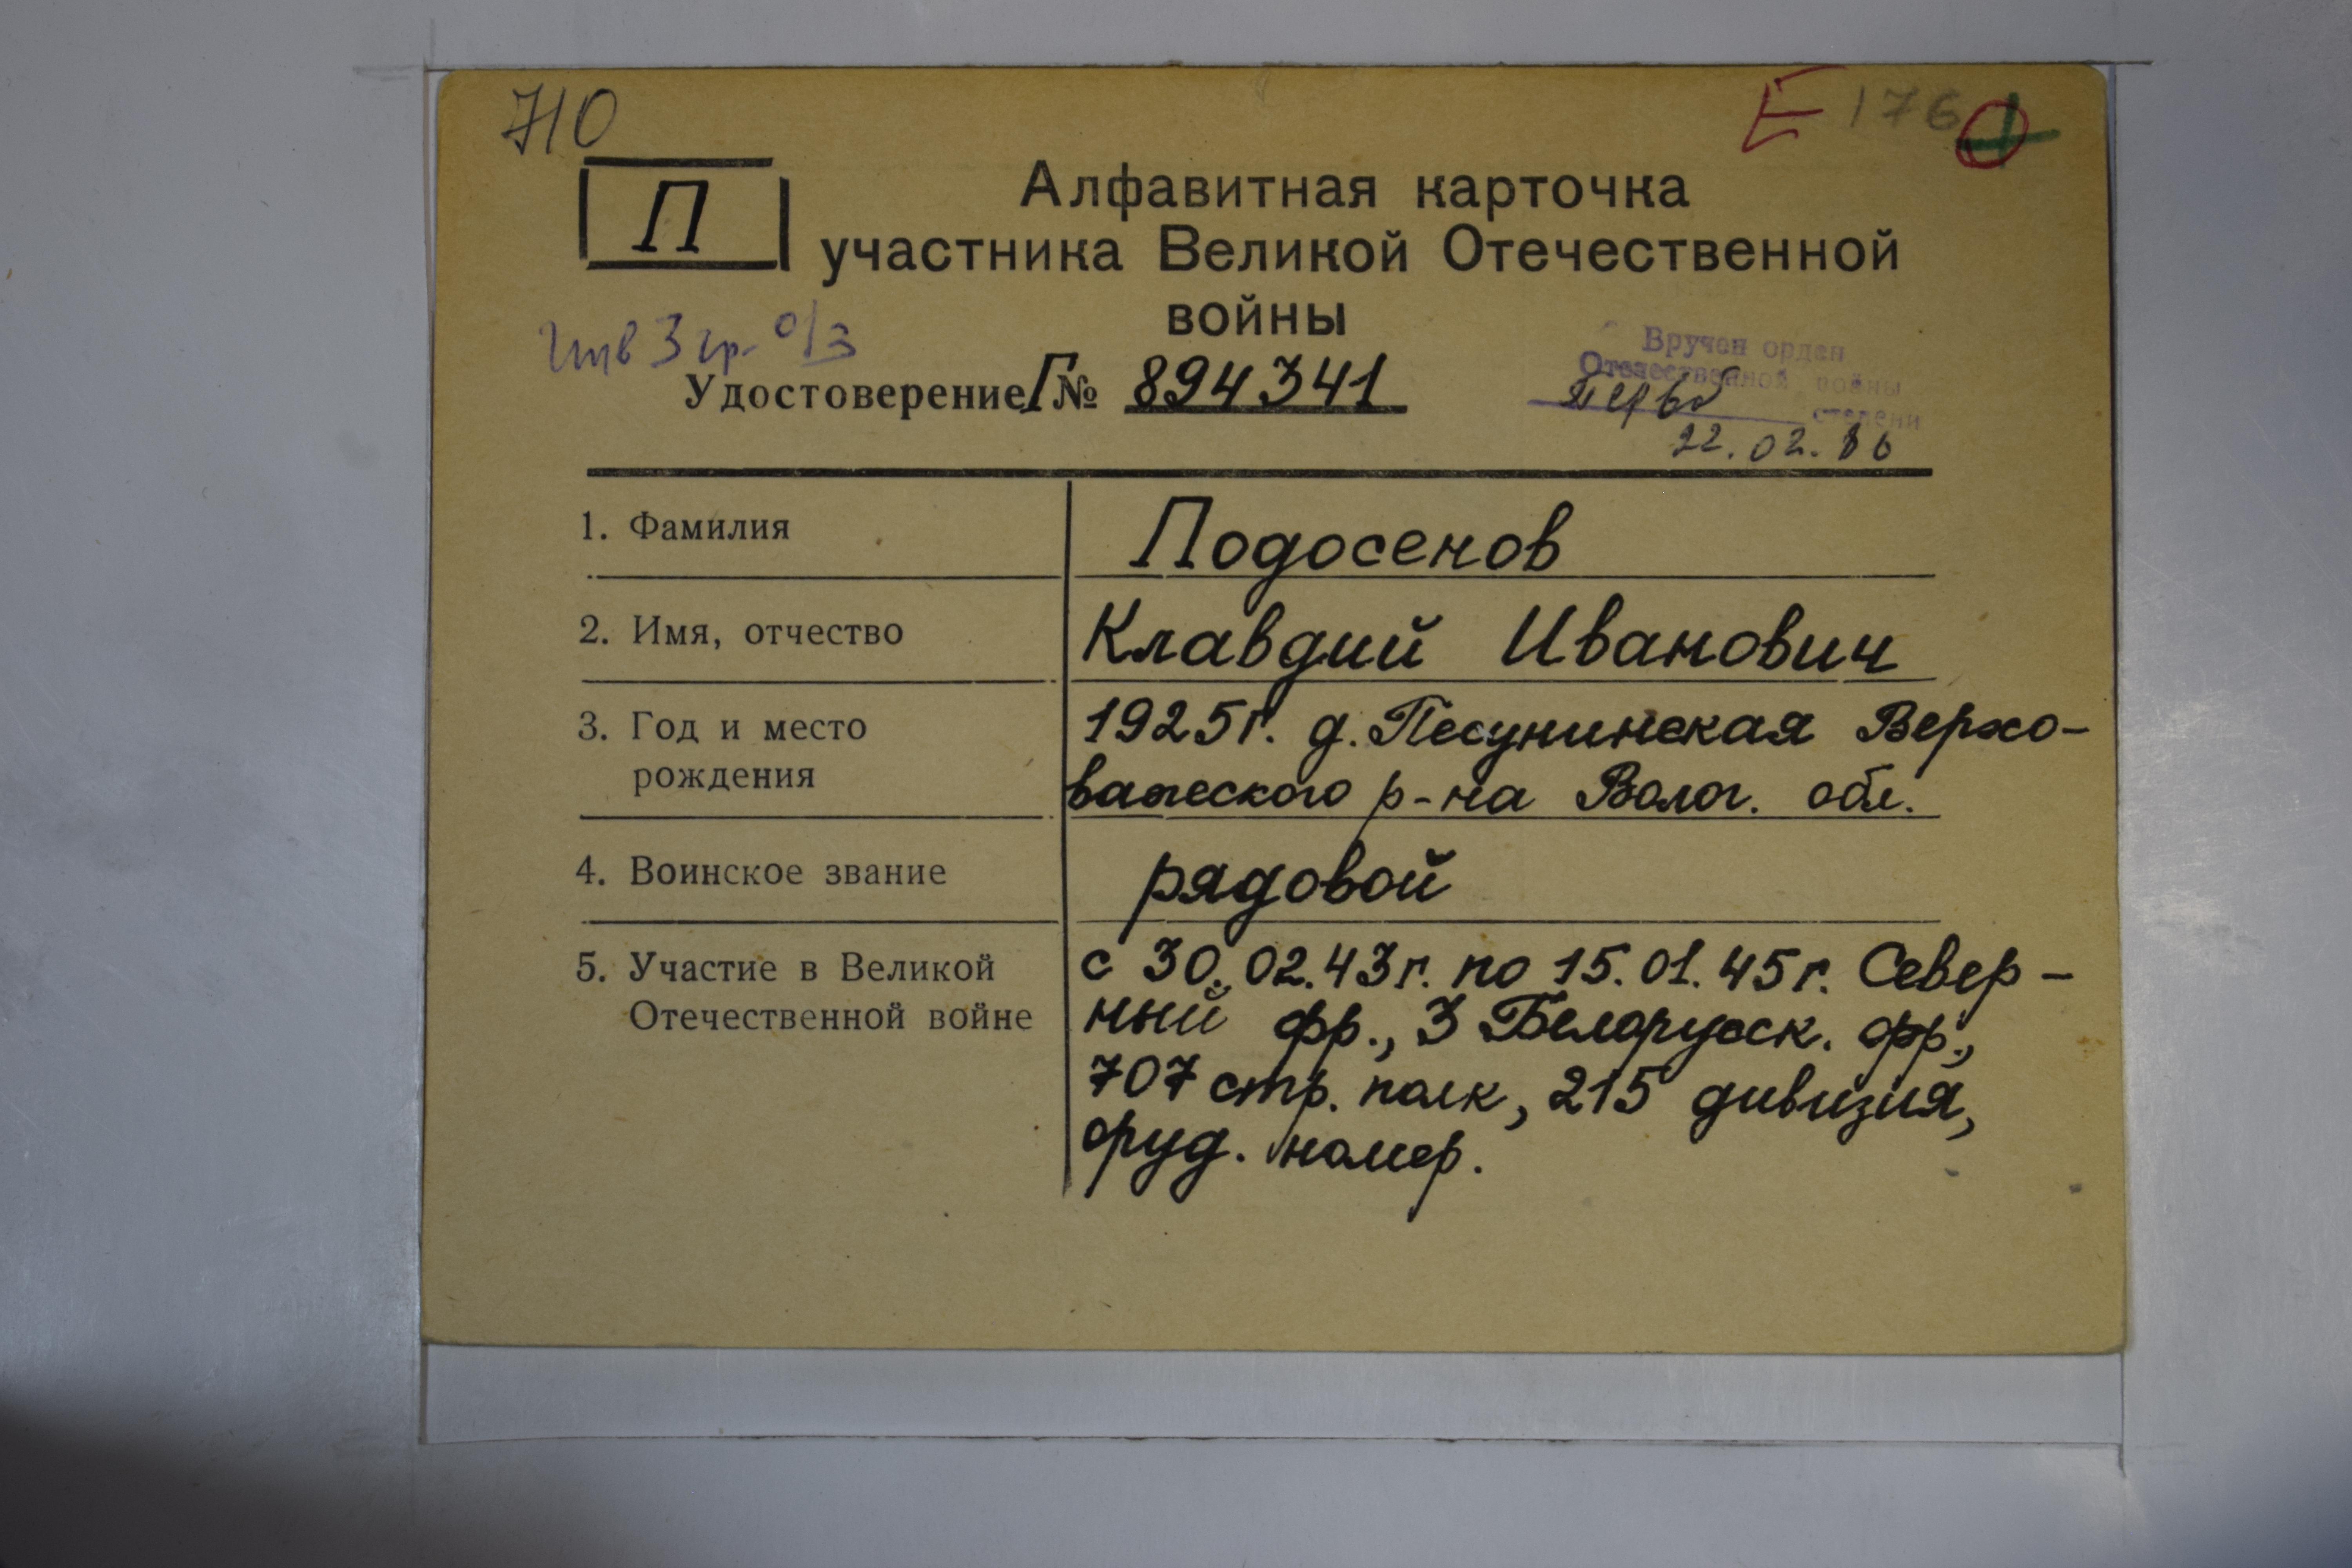 710
Е 176
П
Алфавитная карточка
участника Великой Отечественной
войны
Инв 3 гр. о/з
Вручен орден
Отечественной войны
степени
22.02.86
Удостоверение Г № 894341
1. Фамилия
Подосенов
2. Имя, отчество
Клавдий Иванович
3. Год и место
рождения
1925г. д. Песунинская Верхо-
важеского р-на Волог. обл.
4. Воинское звание
рядовой
5. Участие в Великой
Отечественной войне
с 30.02.43г. по 15.01.45г. Север-
ный фр., 3 Белорусск. фр.,
707 стр. полк, 215 дивизия,
оруд. номер.